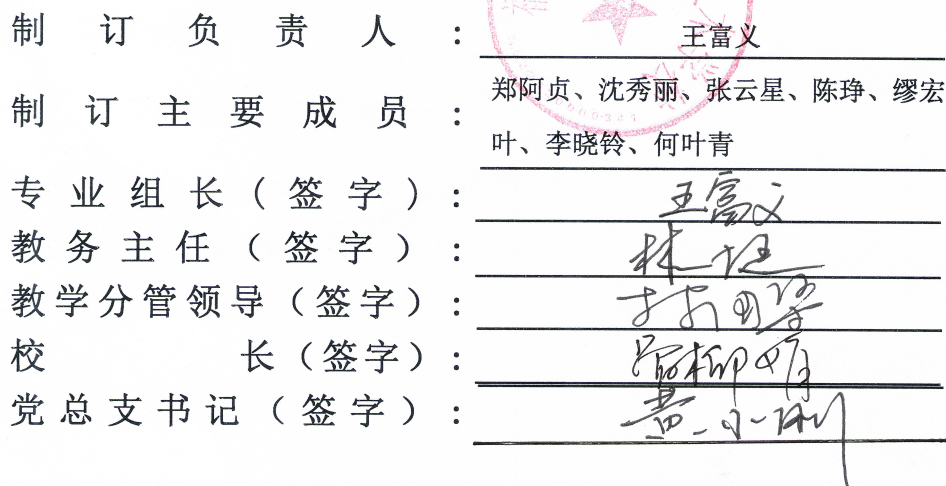 制订负责人:王富义
制订主要成员:郑阿贞、沈秀丽、张云星、陈琤、缪宏
叶、李晓铃、何叶青
专业组长(签字):王富义
教务主任(签字):林
教学分管领导(签字):林
校长(签字):
党总支书记(签字):黄小刚